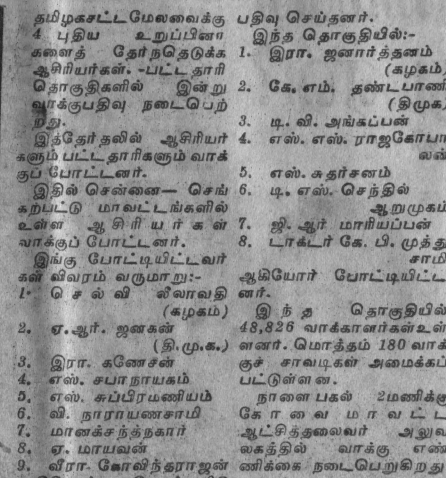 தமிழகசட்டமேலவைக்கு
4 புதிய உறுப்பினர்
களைத் தேர்ந்தெடுக்க
ஆசிரியர்கள். -பட்டதாரி
தொகுதிகளில் இன்று
வாக்குபதிவு நடைபெற்
றது.
இத்தேர்தலில் ஆசிரியர்
களும் பட்டதாரிகளும் வாக்
குப் போட்டனர்.
இதில் சென்னை— செங்
கற்பட்டு மாவட்டங்களில்
உள்ள ஆசிரியர்கள்
வாக்குப் போட்டனர்.
இங்கு போட்டியிட்டவர்
கள் விவரம் வருமாறு:-
1. செல்வி லீலாவதி
(கழகம்)
2. ஏ.ஆர். ஜனகன்
(தி.மு.க.)
3. இரா. கணேசன்
4. எஸ். சபாநாயகம்
5. எஸ். சுப்பிரமணியம்
6. வி. நாராயணசாமி
7. மானக்சந்த்நகார்
8. ஏ. மாயவன்
9. வீரா. கோவிந்தராஜன்
பதிவு செய்தனர்.
இந்த தொகுதியில்:-
1. இரா. ஜனார்த்தனம்
(கழகம்)
2. கே. எம். தண்டபாணி
(திமுக)
3. டி. வி. அங்கப்பன்
4. எஸ். எஸ். ராஜகோபா
லன்
5. எஸ். சுதர்சனம்
6. டி. எஸ். செந்தில்
ஆறுமுகம்
7. ஜி. ஆர் மாரியப்பன்
8. டாக்டர் கே. பி. முத்து
சாமி
ஆகியோர் போட்டியிட்ட
னர்.
இந்த தொகுதியில்
48,826 வாக்காளர்கள்உள்
ளனர். மொத்தம் 180 வாக்
குச் சாவடிகள் அமைக்கப்
பட்டுள்ளன.
நாளை பகல் 2மணிக்கு
கோவை மாவட்ட
ஆட்சித்தலைவர் அலுவ
லகத்தில் வாக்கு எண்
ணிக்கை நடைபெறுகிறது